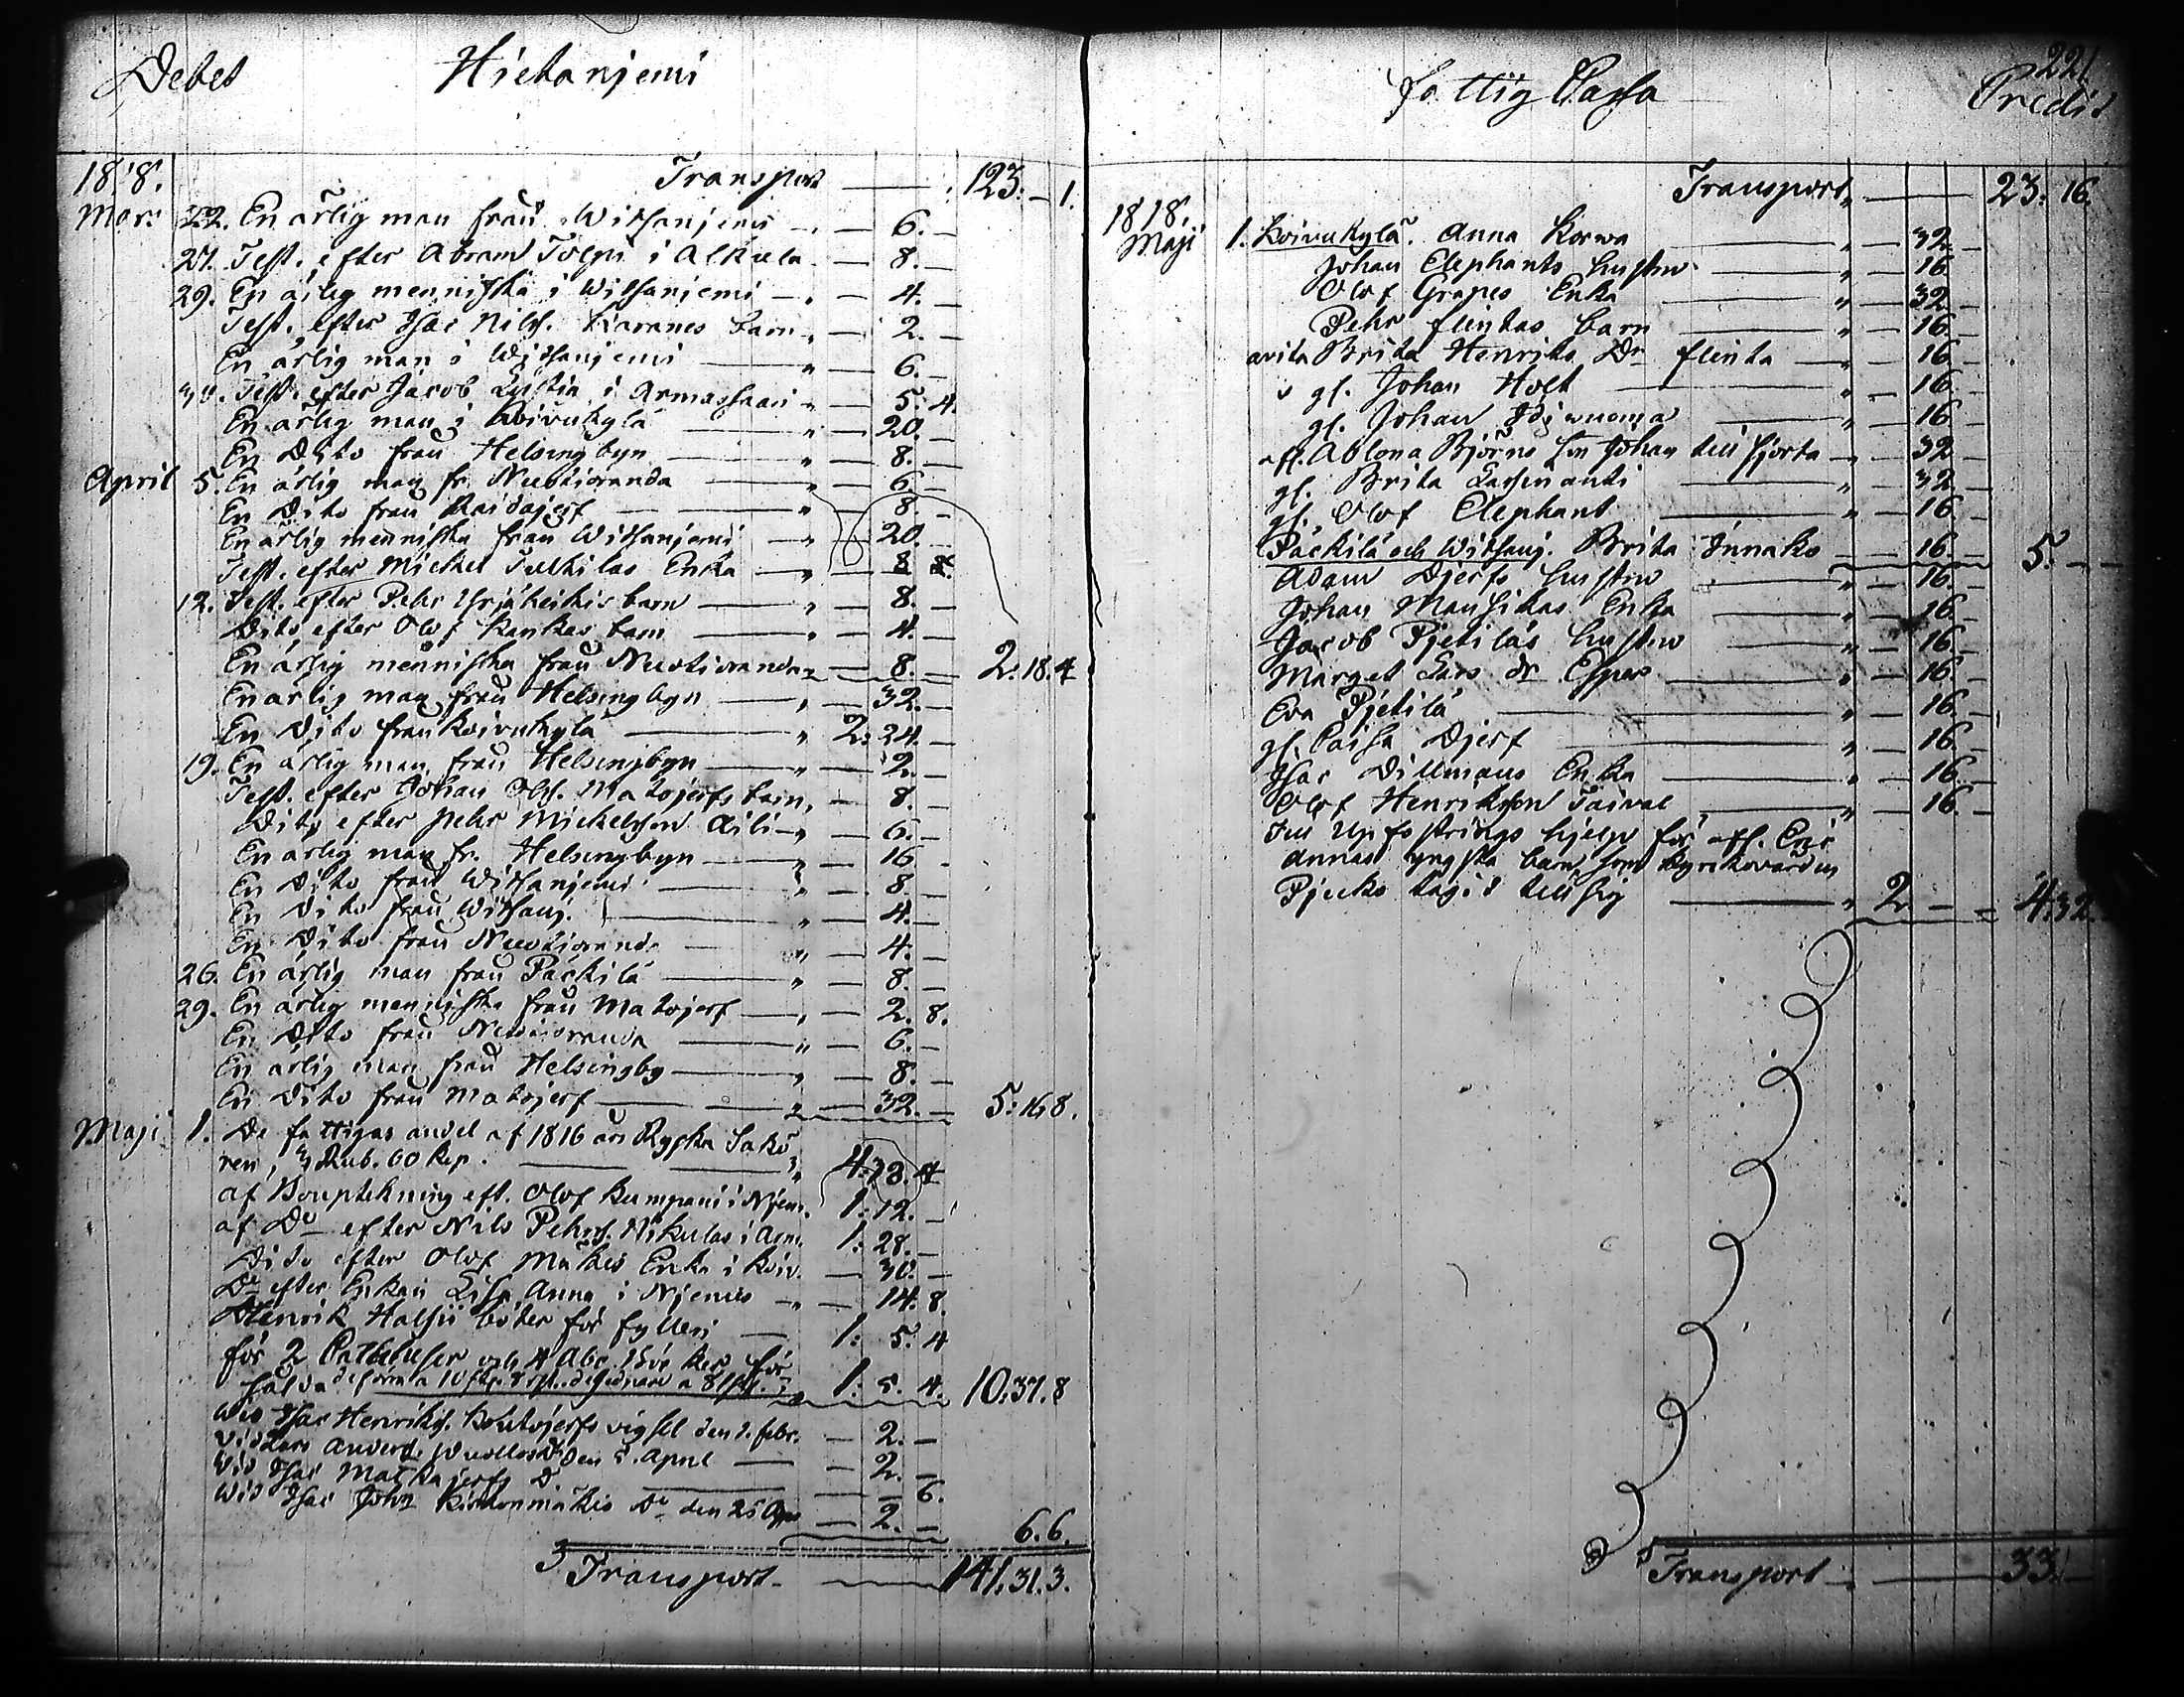 Debet Hietaniemi
1818. Transport — 123. — 1.
Mars 22. En ärlig man från Witsaniemi — 6. —
27. Test. efter Abram Tolpi i Alkula — 8. —
29. En ärlig menniska i Witsaniemi — 4. —
Test. efter Isac Nilss. Karanes barn — 2. —
En ärlig man i Witsaniemi — 6. —
30. Test. efter Jacob i Armassaari — 5. 4.
En ärlig man i Koivukylä — 20. —
En Dito från Helsingbyn — 8. —
April 5. En ärlig man fr. Nuotioranda — 6. —
En Dito från Raidajerf — 8. —
En ärlig menniska från Witsaniemi — 20. —
Test. efter Mickel Enka — 8 8.
12. Test. efter Pehr Yrjäheikis barn — 8. —
Dito efter Olof Kankas barn — 4. —
En ärlig menniska från Nuotioranda — 8. — 2. 18. 4
En ärlig man från Helsingbyn — 32. —
En Dito från Koivukylä — 2: 24. —
19. En ärlig man från Helsingbyn — 2. —
Test. efter Johan Olss. Matojerfs barn, — 8. —
Dito efter Pehr Mickelsson Aili — 6. —
En ärlig man fr. Helsingbyn — 16 —
En Dito från Witsaniemi — 8. —
En Dito från Witsani. — 4. —
En Dito från Nuotiorand. — 4. —
26. En ärlig man från Päckilä — 8. —
29. En ärlig menniska från Matojerf — 2. 8.
En Dito från Nuotioranda — 6. —
En ärlig man från Helsingby — 8. —
En Dito från Matojerf — 32. — 5: 16. 8.
Maji 1. De fattigas andel af 1816 års Ryska Sakö-
ren, 3 Rub. 60 Kop. — 4: 28. 4
af Boupteckning eft. Olof Kumpani i Njem. 1: 12. —
af Do efter Nils Pehrs. Nikulas i Arm. 1: 28. —
Dito efter Olof Mäkis Enka i Koiv. — 30. —
Do efter Enkan Lisa Anna i Njemis — 14. 8.
Henrik Halsii böter för fylleri — 1: 5. 4
för 2 Catheheser och 4 Abc Böcker för-
sålda de förra a 10 sk. 8 rst. de sednare a 8 — 1: 5. 4. 10: 37. 8
Wid Isac Henrikss. vigsel den 2. febr. — 2. —
Vid Lars Anders. Do den 5. April — 2. —
Wid Isac Matkajerfs Do — 6.
Wid Isac Johns Do den 25 Apr — 2. — 6. 6.
Transport — 141. 31. 3.
221
Fattig Cassa Credit
Transport, — 23: 16.
1818.
Maji 1. Koivukylä. Anna Korwa — 32. —
Johan Elephants hustru — 16 —
Olof Grapes Enka — 32 —
Pehr Flinkas barn — 16. —
Brita Henriks Dr Flinka — 16 —
gl. Johan Holt — 16. —
gl. Johan — 16 —
afl. Ablona Björns son Johan till skjorta — 32 —
gl. Brita Lassinanti — 32 —
gl. Olof Elephant — 16. —
Päckilä och Witsani. Brita Innako — 16. — 5. —
Adam Djerfs hustru — 16. —
Johan Mansikas Enka — 16. —
Jacob Pjetiläs hustru — 16. —
Marget Lars dr Espas — 16. —
Eva Pjetilä — 16. —
gl. Caisa Djerf — 16. —
Isac Dillmans Enka — 16. —
Olof Henriksson Taival — 16. —
Till Upfostrings hjelp för afl. Eric
Annas yngsta barn, som Kyrkovärden
Pjucko tagit till sig — 2. — 4. 32.
Transport — 33. —